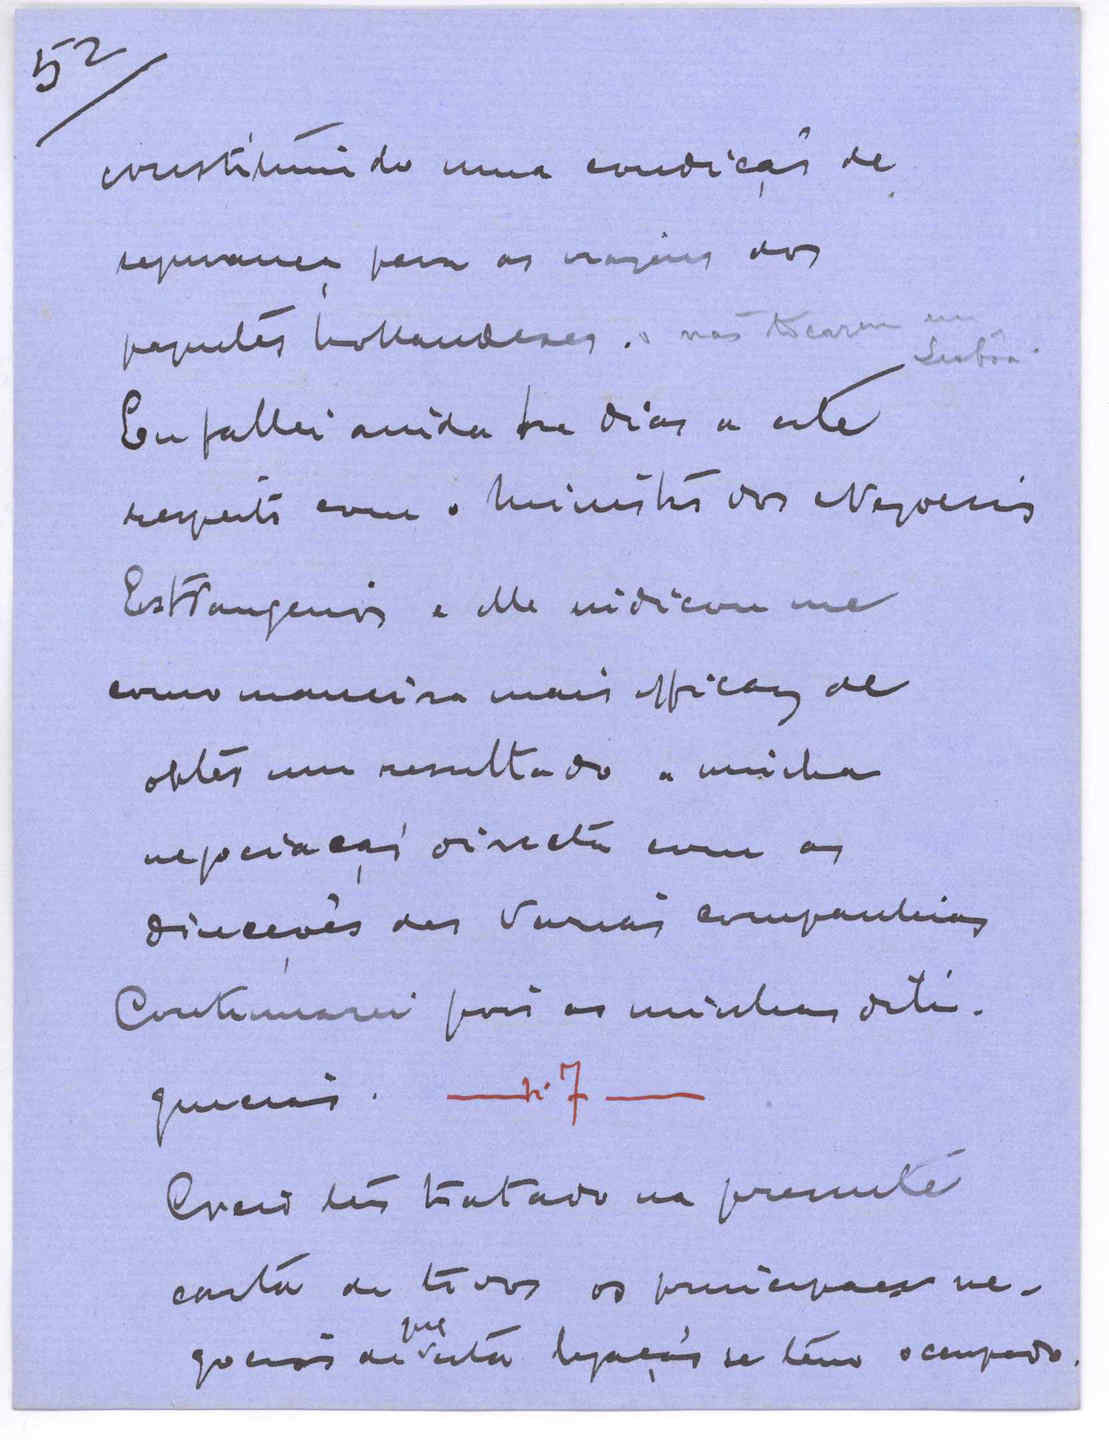 52
constituindo uma condição de
segurança para as viagens dos
paquetes hollandeses. o não tocarem em
Lisbôa.
Eu fallei ainda ha dias a este
respeito com o Ministro dos Negocios
Estrangeiros e elle indicou me
como maneira mais efficaz de
obter um resultado a minha
negociação directa com as
direcções das varias companhias
Continuarei pois as minhas dili-
gencias. — nº 7 —
Creio ter tratado na presente
carta de todos os principaes ne-
que
gocios de esta legação se tem occupado.